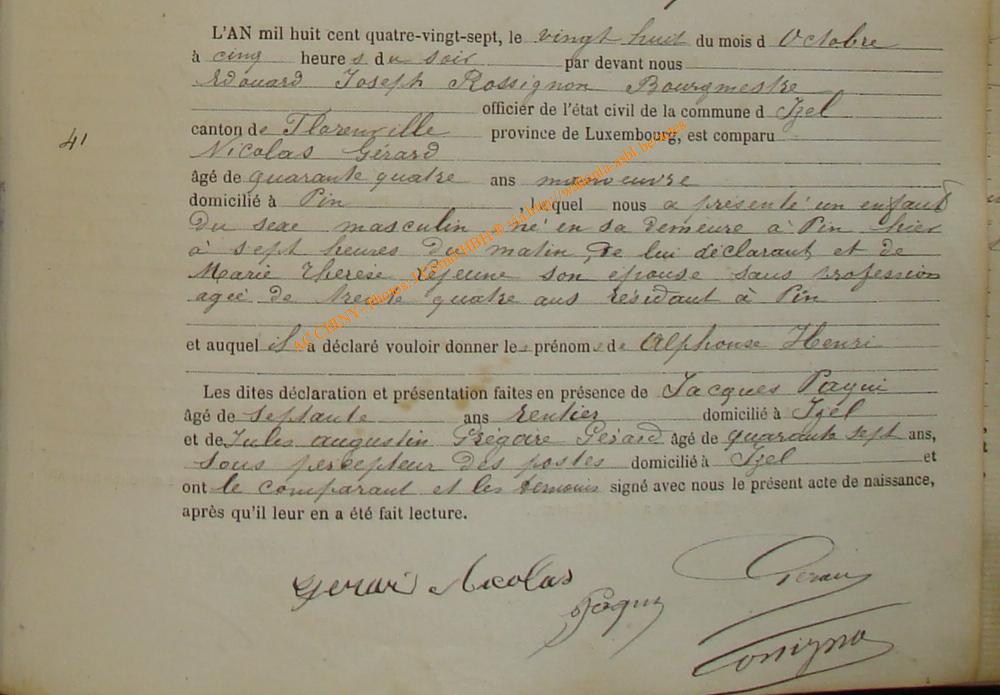 L'AN mil huit cent quatre-vingt-sept, le vingt huit du mois d Octobre
à cinq heures du soir par devant nous
Edouard Joseph Rossignon Bourgmestre
officier de l'état civil de la commune d Izel
canton de Florenville province de Luxembourg, est comparu
41
Nicolas Gérard
âgé de quarante quatre ans manoeuvre
domicilié à Pin , lequel nous a présenté un enfant
du sexe masculin né en sa demeure à Pin hier
à sept heures du matin, de lui déclarant et de
Marie Thérèse Lejeune son épouse sans profession
agée de trente quatre ans résidant à Pin
et auquel il a déclaré vouloir donner les prénoms de Alphonse Henri
Les dites déclaration et présentation faites en présence de Jacques Paqui
âgé de septante ans rentier domicilié à Izel
et de Jules Augustin Grégoire Gérard âgé de quarante sept ans,
sous percepteur des postes domicilié à Izel et
ont le comparant et les témoins signé avec nous le présent acte de naissance,
après qu'il leur en a été fait lecture.
Nicolas